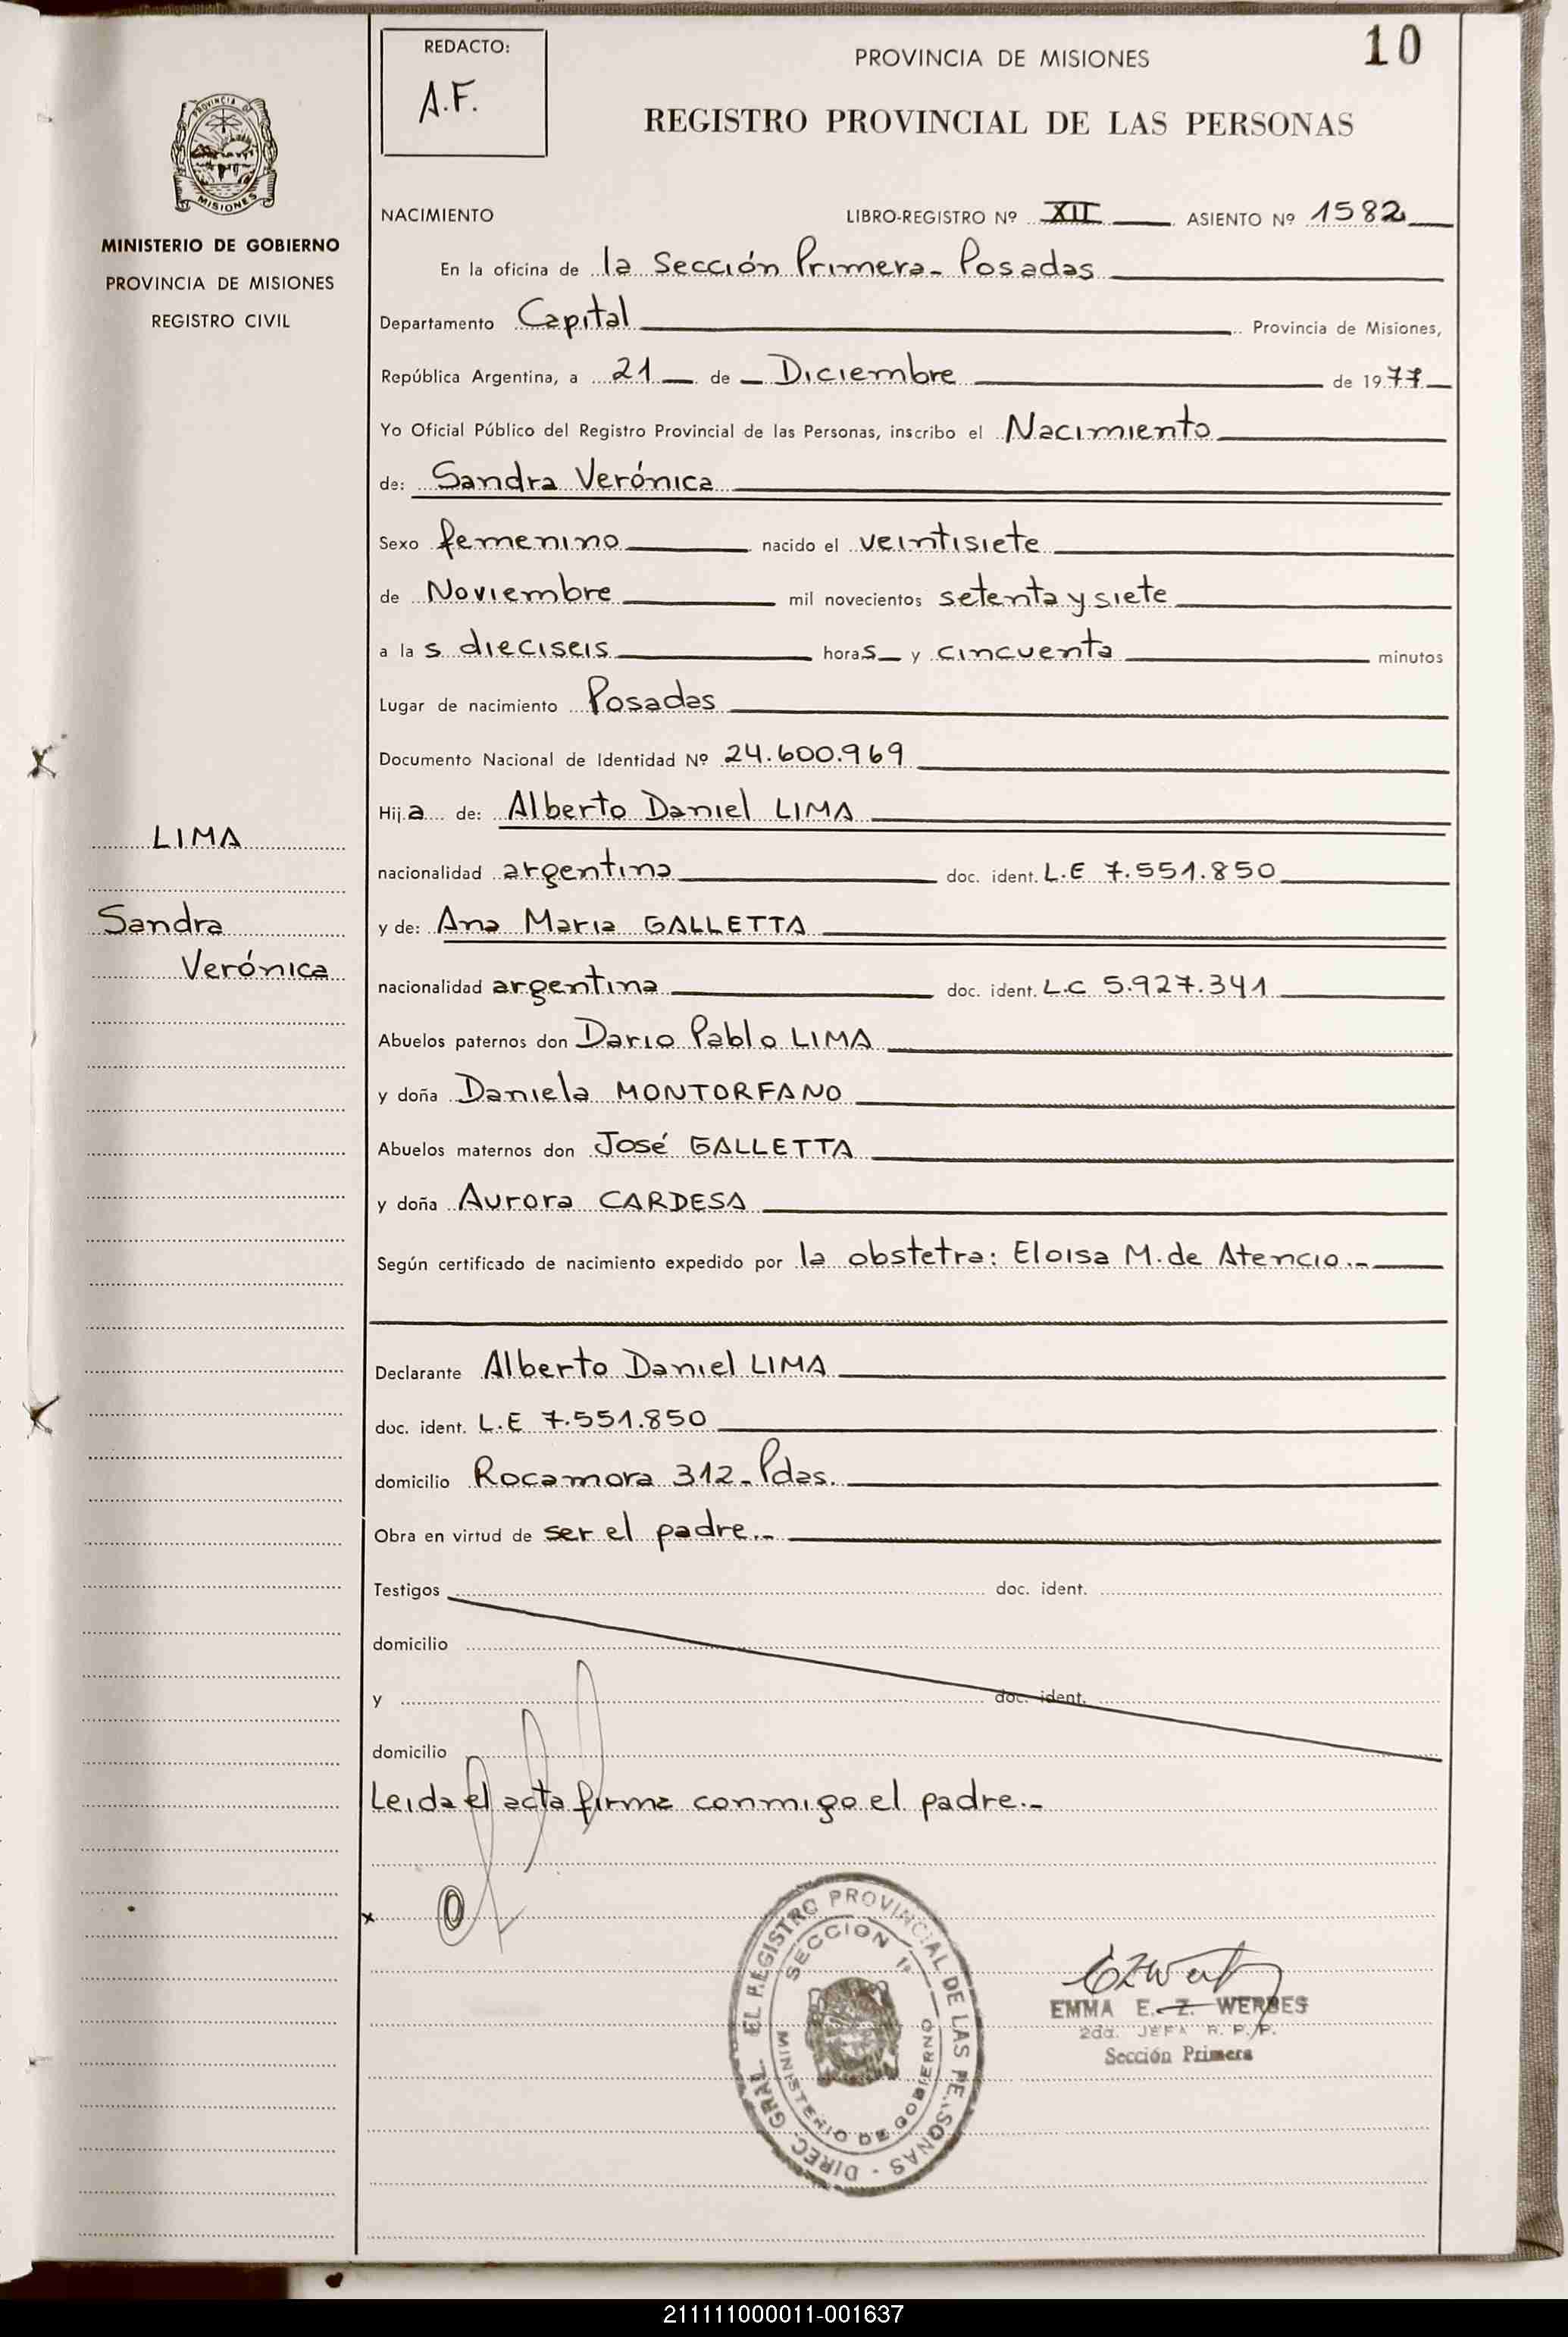 REDACTO:
A.F.
PROVINCIA DE MISIONES
10
REGISTRO PROVINCIAL DE LAS PERSONAS
PROVINCIA DE
MISIONES
MINISTERIO DE GOBIERNO
PROVINCIA DE MISIONES
REGISTRO CIVIL
LIMA
Sandra
Verónica
NACIMIENTO LIBRO-REGISTRO Nº XII ASIENTO Nº 1582
En la oficina de la Sección Primera- Posadas
Departamento Capital Provincia de Misiones,
República Argentina, a 21 de Diciembre de 1977
Yo Oficial Público del Registro Provincial de las Personas, inscribo el Nacimiento
de: Sandra Verónica
Sexo femenino nacido el veintisiete
de Noviembre mil novecientos setenta y siete
a las dieciseis horas y cincuenta minutos
Lugar de nacimiento Posadas
Documento Nacional de Identidad Nº 24.600.969
Hija de: Alberto Daniel LIMA
nacionalidad argentina doc. ident. L.E 7.551.850
y de: Ana Maria GALLETTA
nacionalidad argentina doc. ident. L.C 5.927.341
Abuelos paternos don Dario Pablo LIMA
y doña Daniela MONTORFANO
Abuelos maternos don José GALLETTA
y doña Aurora CARDESA
Según certificado de nacimiento expedido por la obstetra: Eloisa M. de Atencio.-
Declarante Alberto Daniel LIMA
doc. ident. L.E 7.551.850
domicilio Rocamora 312- Pdas.
Obra en virtud de ser el padre.-
Testigos doc. ident.
domicilio
y doc. ident.
domicilio
Leida el acta firma conmigo el padre.-
DIREC. GRAL. EL REGISTRO PROVINCIAL DE LAS PERSONAS -
SECCION 1ª
MINISTERIO DE GOBIERNO
EMMA E. Z. WERBES
2da. JEFA R. P. P.
Sección Primera
211111000011-001637